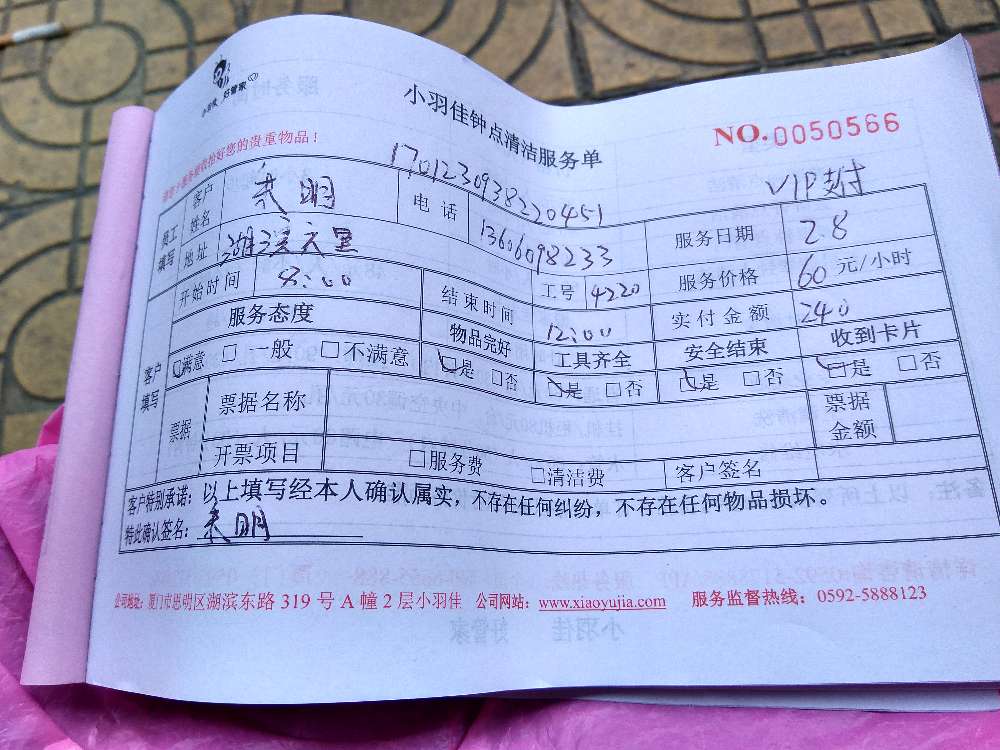 小羽佳 好管家
小羽佳钟点清洁服务单
NO.0050566
贵重物品!
1701230938220451
VIP支付
员工填写
客户姓名
明
电话
13606098233
服务日期
2.8
地址
湖滨
工号
4220
服务价格
60元/小时
客户填写
开始时间
8:00
结束时间
12:00
实付金额
240
服务态度
物品完好
工具齐全
安全结束
收到卡片
□满意 □一般 □不满意
□是 □否
□是 □否
□是 □否
□是 □否
票据
票据名称
票据金额
开票项目
□服务费 □清洁费
客户签名
客户特别承诺:以上填写经本人确认属实,不存在任何纠纷,不存在任何物品损坏。
特此确认签名: 明
公司地址:厦门市思明区湖滨东路 319 号 A 幢 2 层小羽佳 公司网站:www.xiaoyujia.com 服务监督热线:0592-5888123